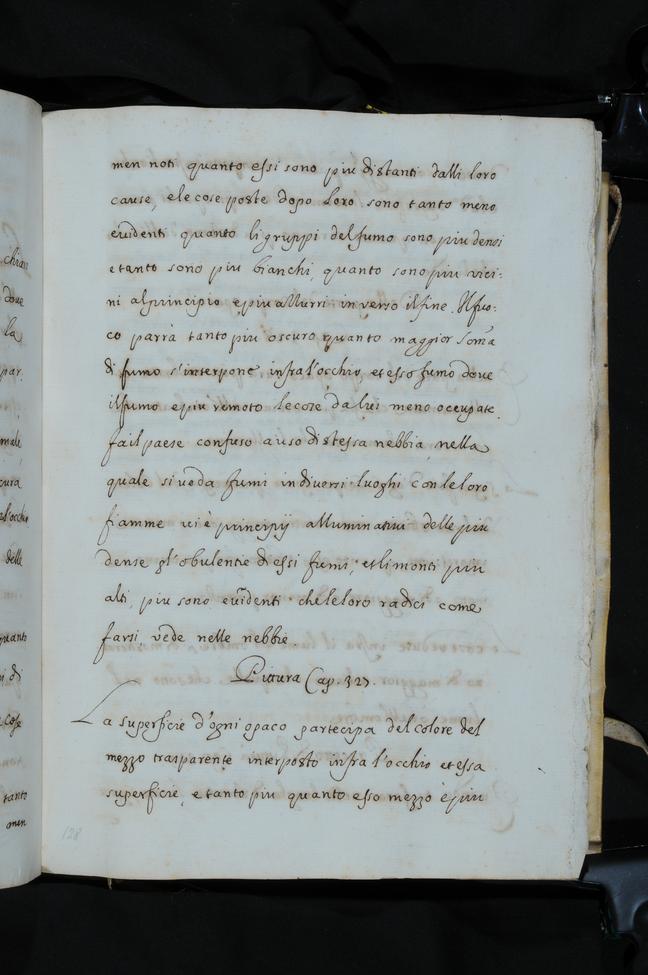 men noti quanto essi sono più distanti dalli loro
cause, e le cose poste dopo loro sono tanto meno
euidenti quanto li gruppi del fumo sono piu densi
e tanto sono piu bianchi, quanto sono piu vici:
ni al principio e piu allurri inverso il fine. Il fuo:
co parrà tanto piu oscuro quanto maggior soma
di fumo s'interpone infra l'occhio et esso fumo doue
il fumo e piu remoto le cose da lui meno occupate.
fa il paese confuso a uso di stessa nebbia nella
quale si ueda fumi in diversi luoghi con le loro
fiamme ui è principij alluminatiui delle piu
dense gl'obulentie di essi fumi, et li monti piu
alti, piu sono euidenti che le loro radici come
farsi vede nelle nebbie
Pittura Cap. 327.
La superficie d'ogni opaco partecipa del colore del
mezzo trasparente interposto infra l'occhio et essa
superficie, e tanto piu quanto esso mezzo è piu
128
chiar
doue
la
par.
male
cura
l'occhio
delle
quanto
di
cose
tanto
men